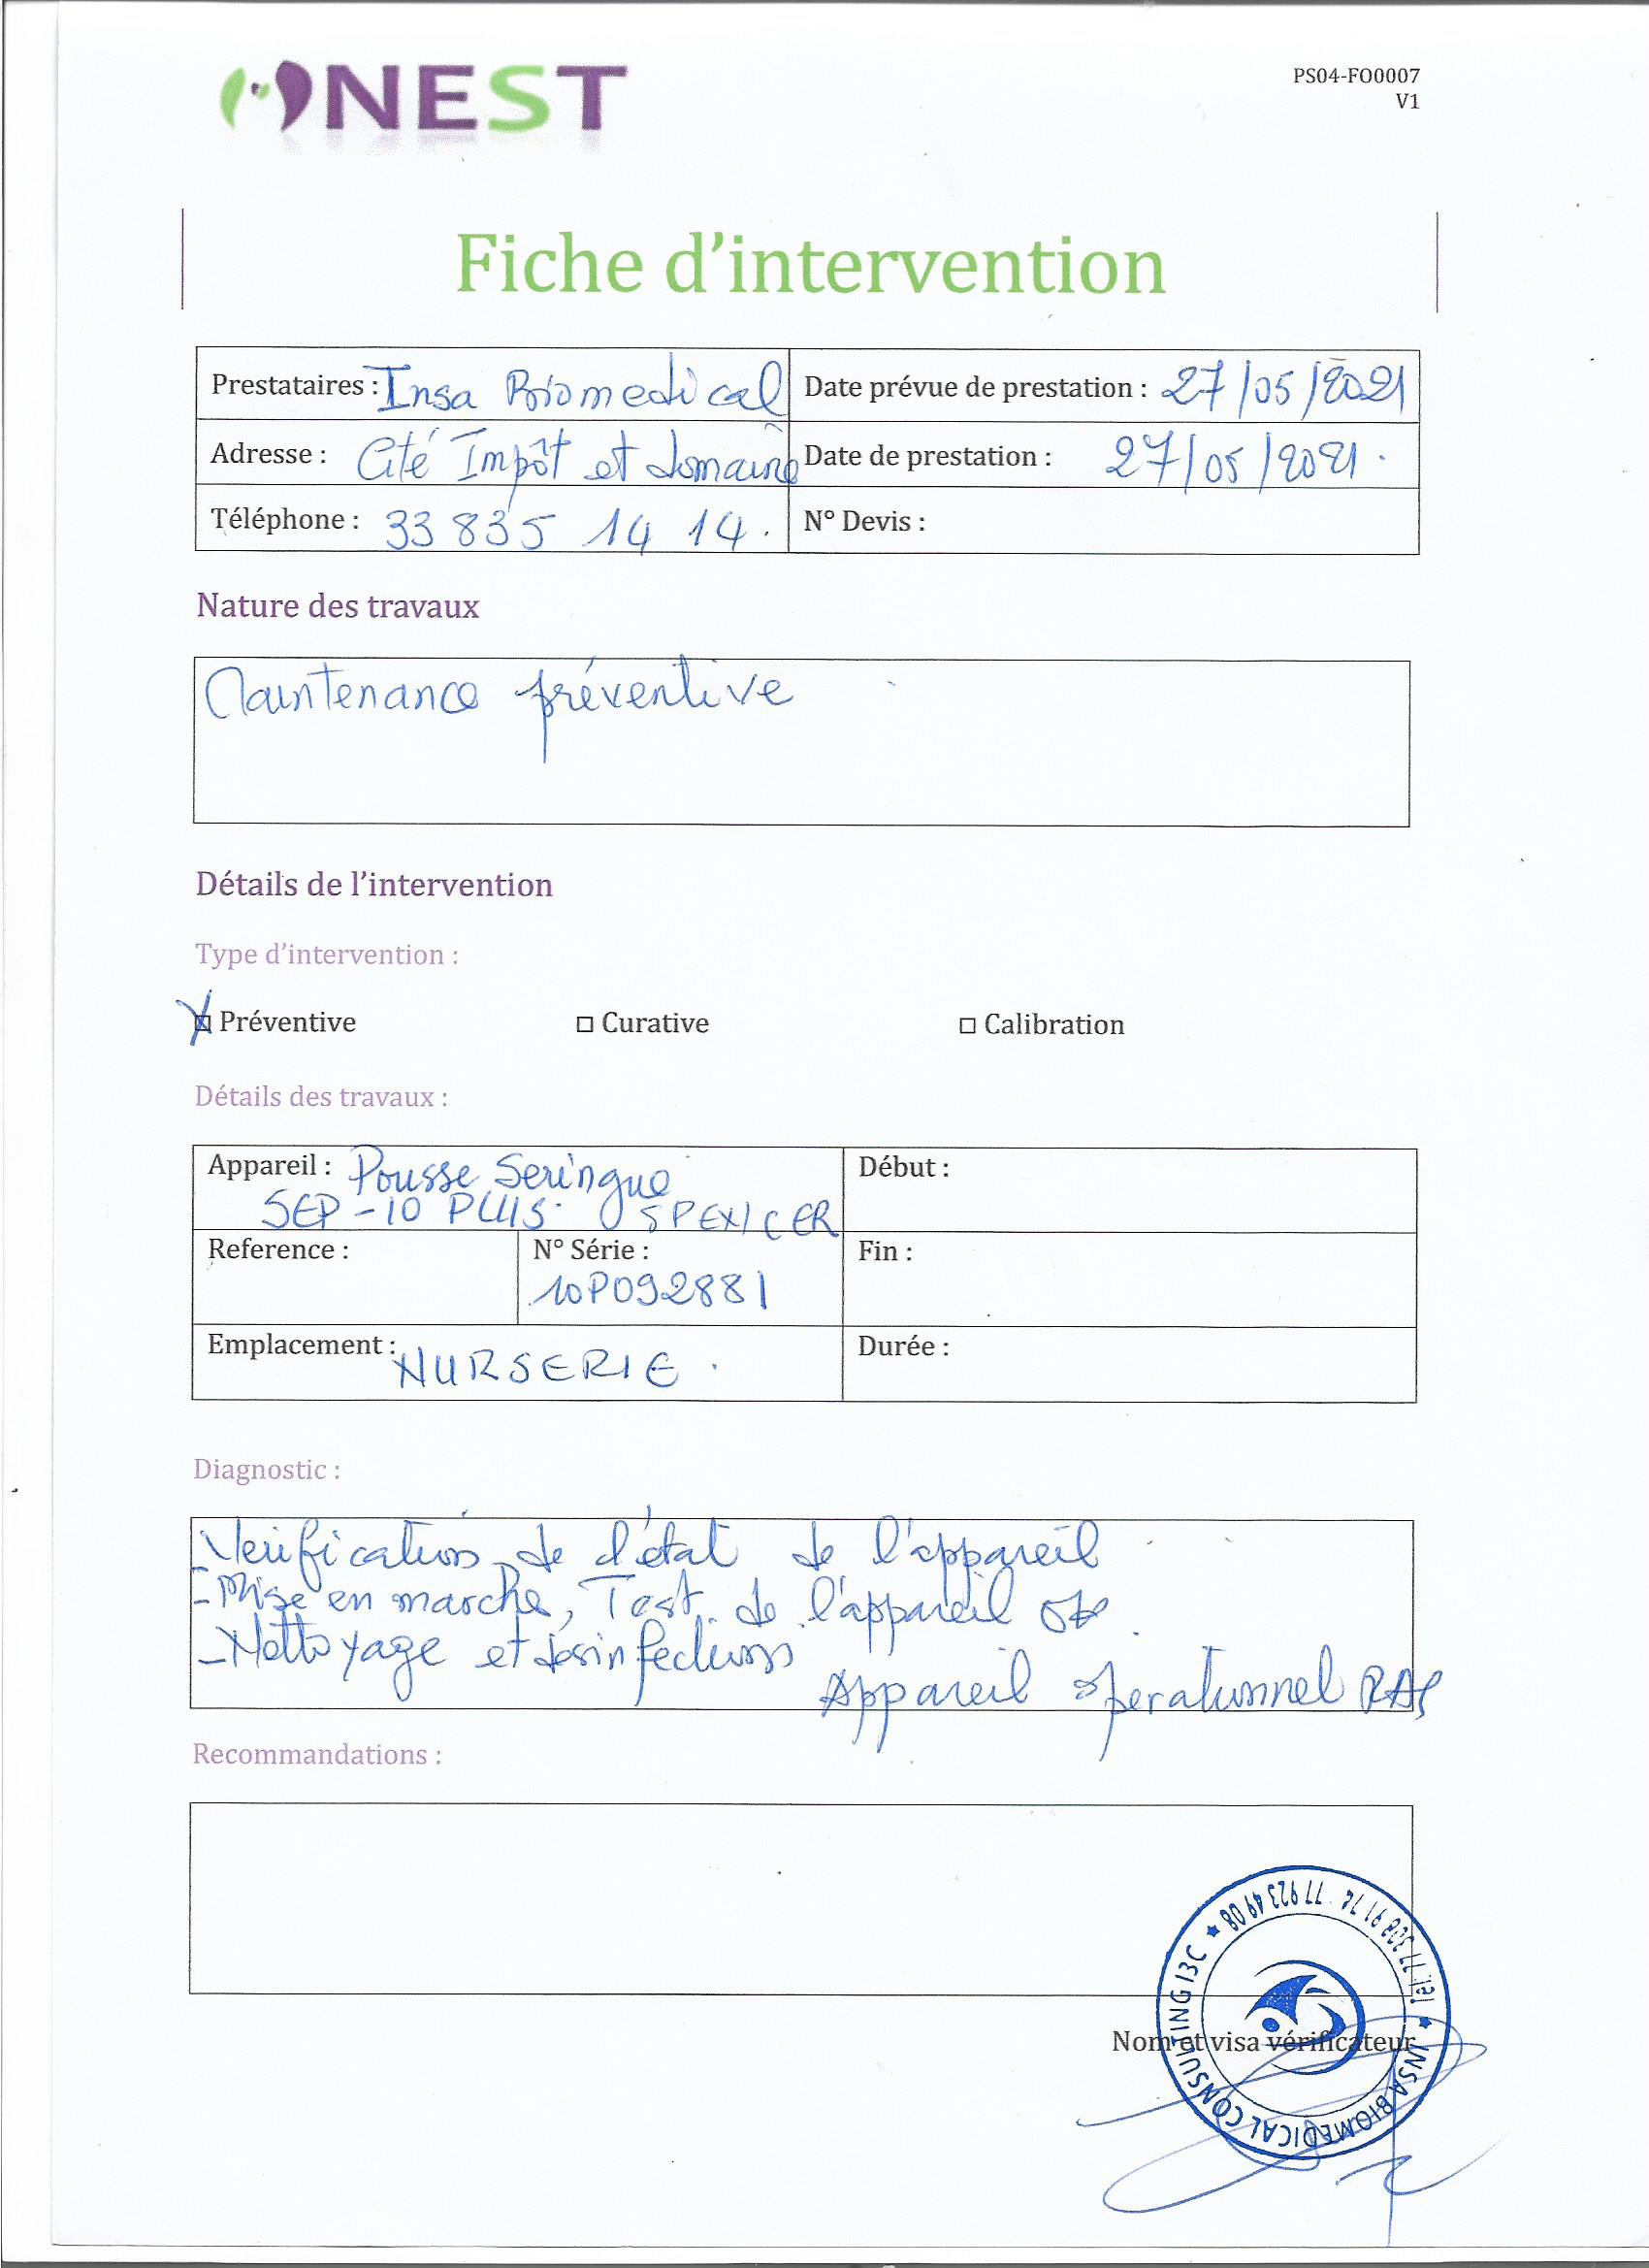 NEST
PS04-FO0007
V1
Fiche d'intervention
Prestataires : Insa Biomedical
Date prévue de prestation : 27/05/2021
Adresse : Cité Impôt et domaine
Date de prestation : 27/05/2021.
Téléphone : 33 835 14 14.
N° Devis :
Nature des travaux
Maintenance préventive
Détails de l'intervention
Type d'intervention :
Préventive
Curative
Calibration
Détails des travaux :
Appareil : Pousse Seringue
SEP-10 PLUS. SPEXICER
Début :
Reference :
N° Série :
10P092881
Fin :
Emplacement : NURSERIE.
Durée :
Diagnostic :
- Verification de l'état de l'appareil
- Mise en marche, Test de l'appareil ok
- Nettoyage et desinfection
Appareil operationnel RAS
Recommandations :
Nom et visa vérificateur
INSA BIOMEDICAL CONSULTING I3C ★ 77 923 49 08